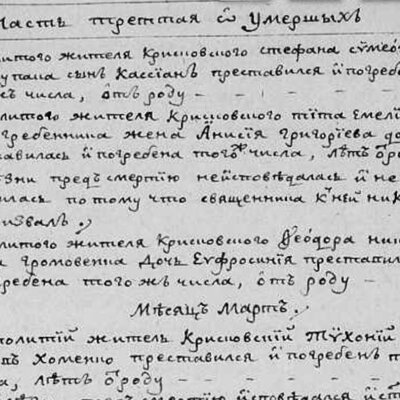 Часть третїая ѿ Умершыхъ
литого жителя Крисковского стефана сѵмео
упана сынъ Кассїанъ преставился и погребе
жъ числа, ѿ роду — — — — — —
олитого жителя Крисковского тїта Емелї
гребенника жена Анисїя григорїева до
авилась и погребена тогожъ числа, лѣтъ ѿ ро
зни предъ смертїю неисповѣдалась и не
илась потому что священника къ ней ник
извалъ.
литого жителя Крисковского Ѳеодора ни
а громовенка дочь Еуфросинїя преставил
ребена того жъ числа, ѿ роду —
Мѣсяцъ Мартъ.
политїй житель Крисковскїй Тѵхонїй
въ Хоменко преставился и погребенъ т
а, лѣтъ ѿ роду — — — — —
предъ смертїю исповѣдался и